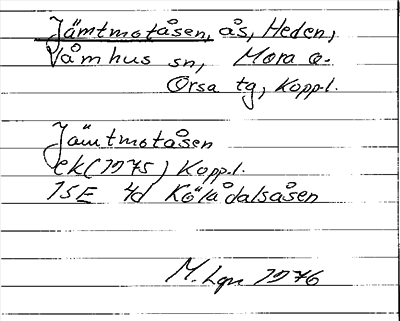 Jämtmotåsen, ås, Heden,
Våmhus sn, Mora o.
Orsa tg, Koppl.
Jämtmotåsen
ek (1975) Koppl.
15E 4d Kölådalsåsen
M. Lgn 1976